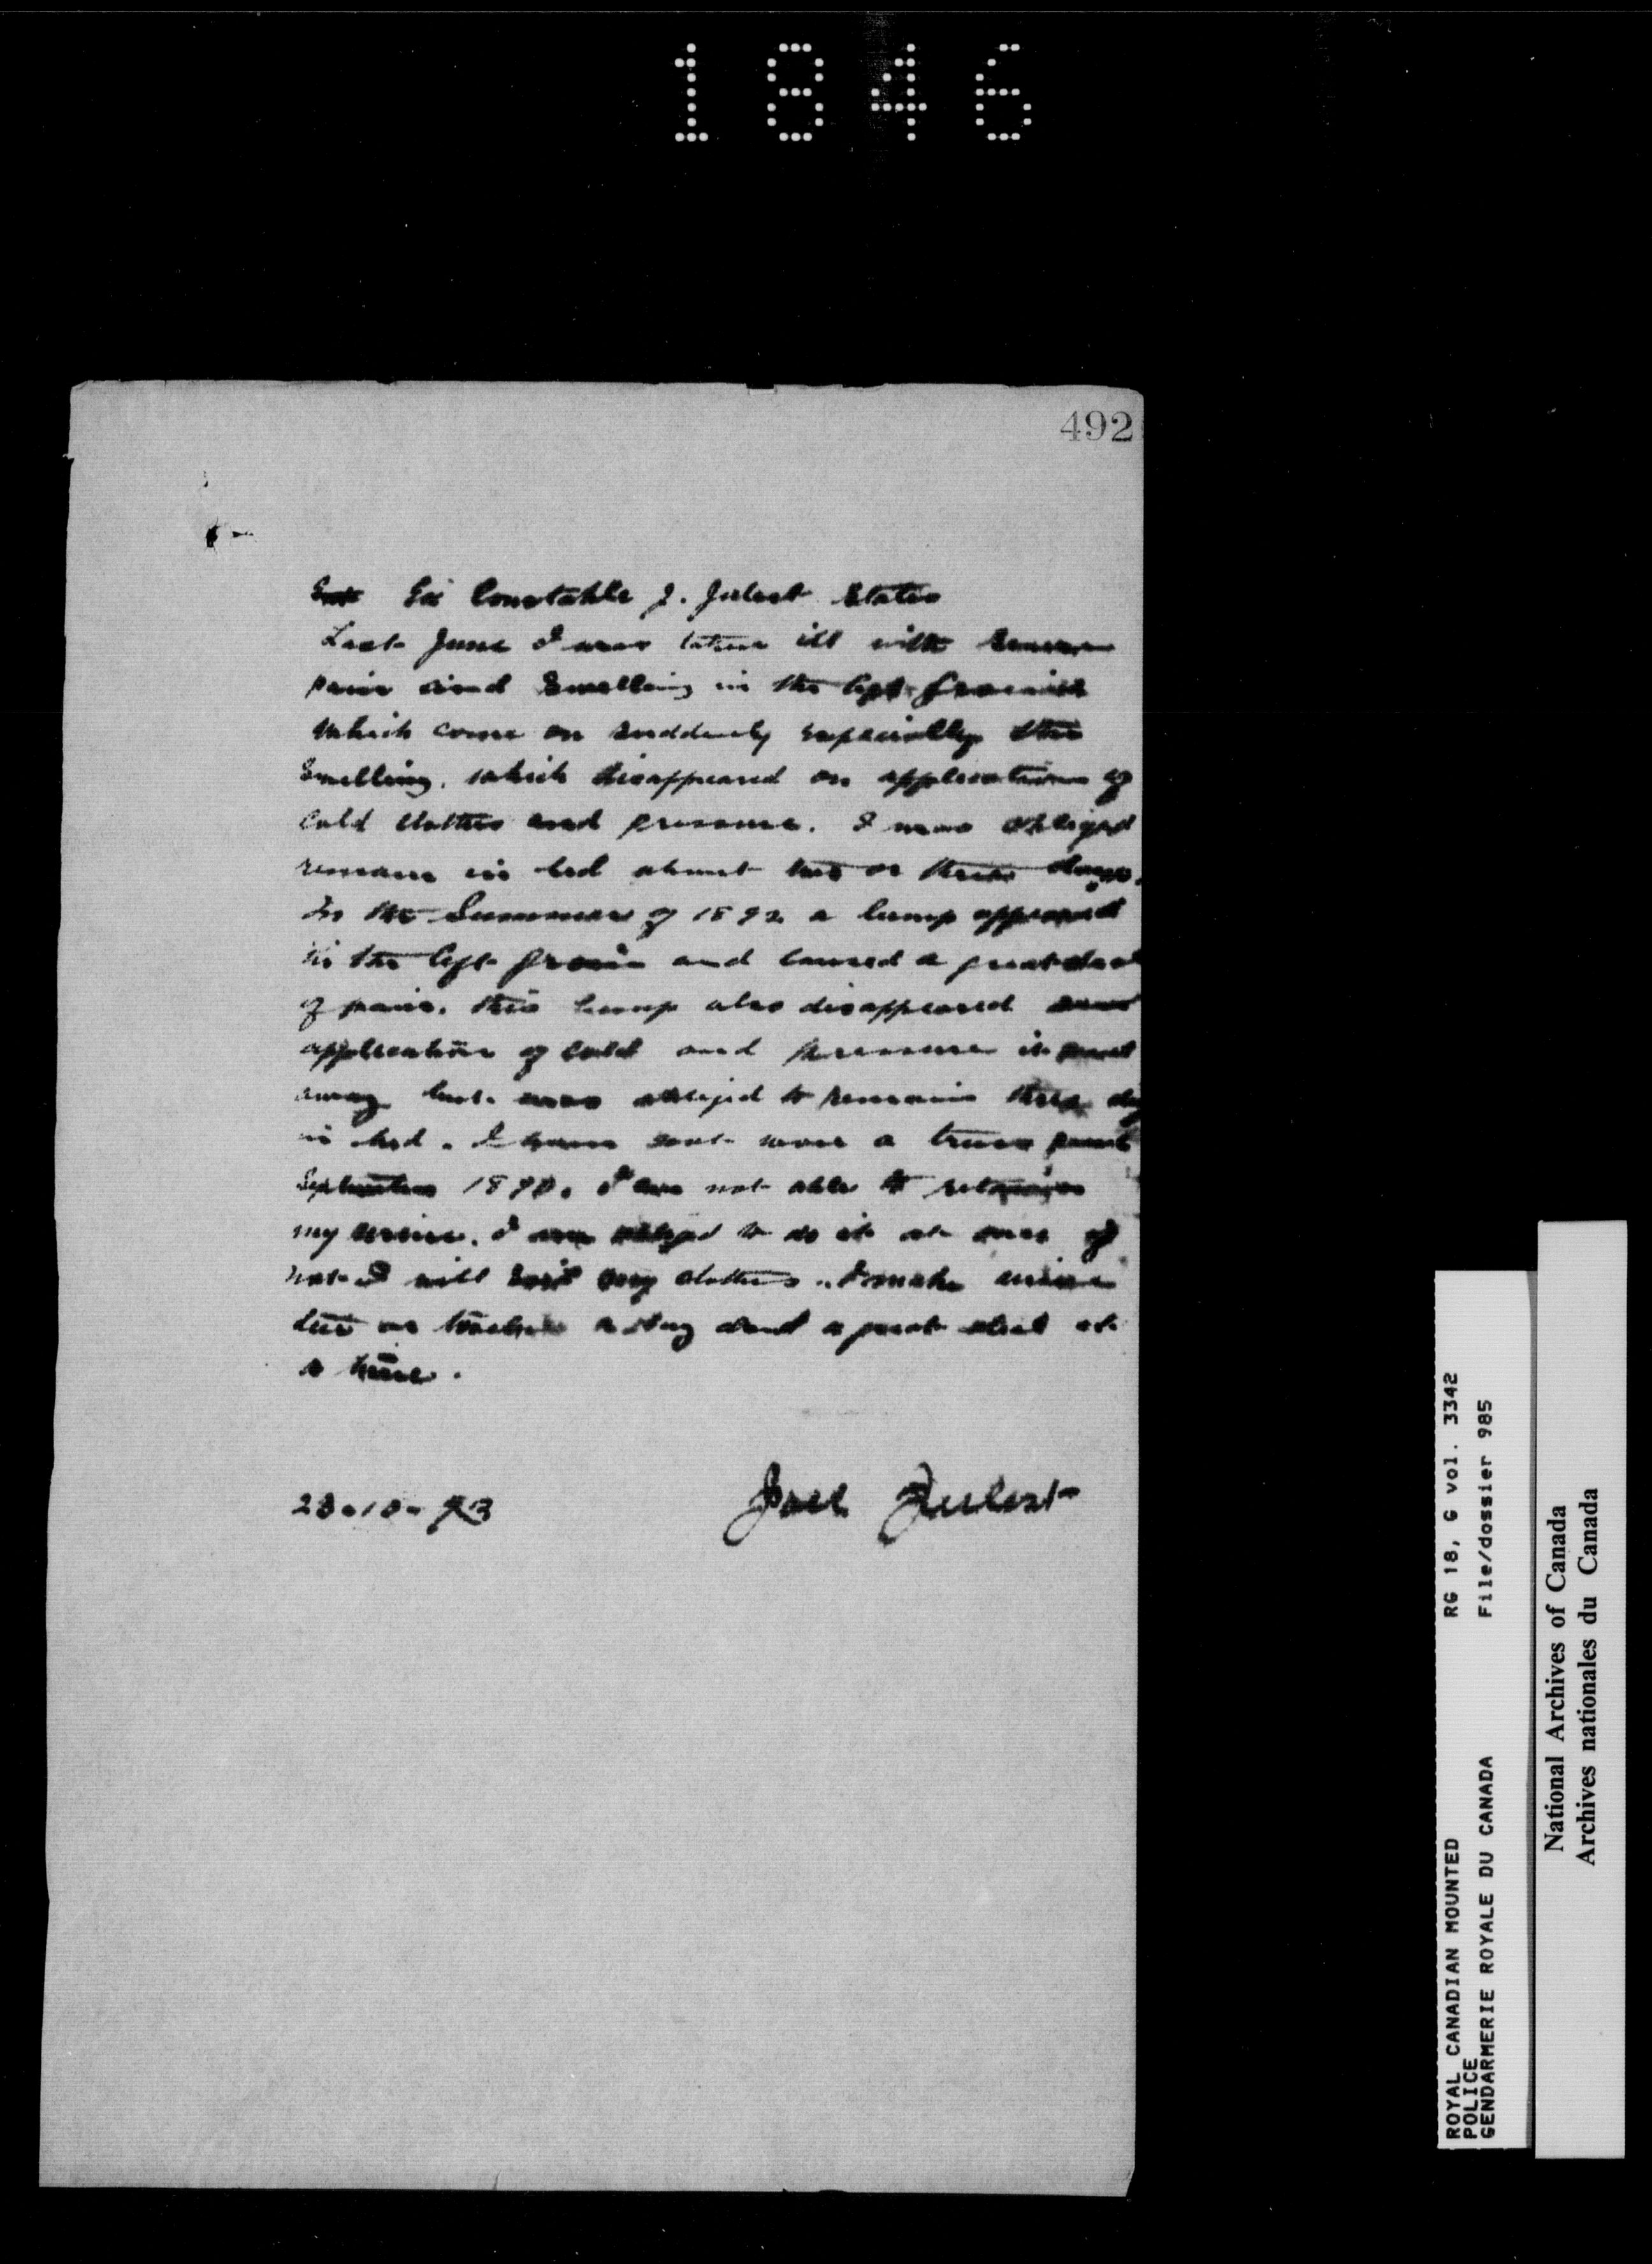 1846
492
Ex Constable J. Jubert States
Last June I was taken ill with severe
pain and swelling in the left groin
which come on suddenly especially the
swelling, which disappeared on application of
cold clothes and pressure. I was obliged
remain in bed about two or three days.
In the Summer of 1892 a lump appeared
in the left groin and caused a great deal
of pain. this lump also disappeared
application of cold and pressure it
away but was obliged to remain three day
in bed. I have not wore a truss
September 1890. I am not able to retain
my urine. I am obliged to do it at once if
not I will soil my clothes. I make urine
ten or twelve a day and a great deal at
a time.
28-10-93
Joel Jubert
ROYAL CANADIAN MOUNTED
POLICE
GENDARMERIE ROYALE DU CANADA
RG 18, G vol. 3342
File/dossier 985
National Archives of Canada
Archives nationales du Canada